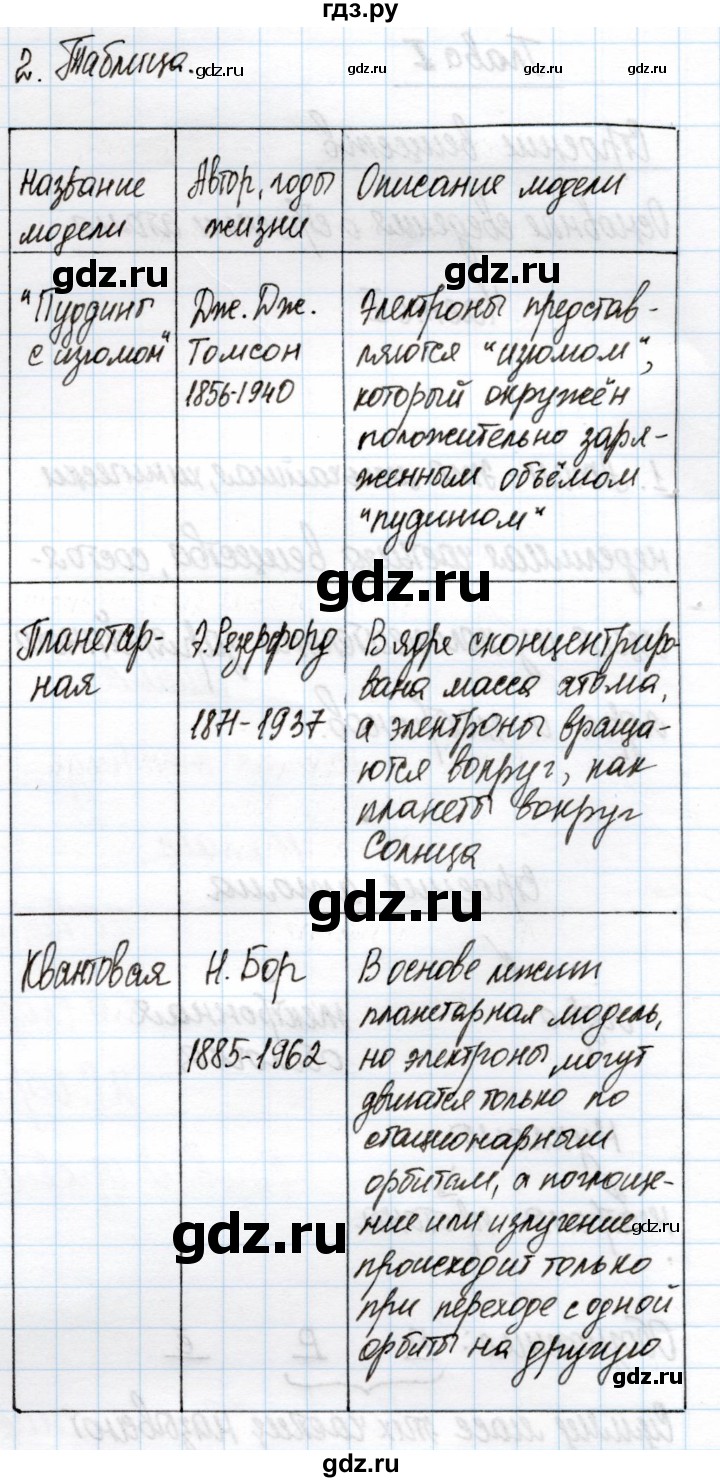 гдз.ру
2. Таблица.
gdz.ru gdz.ru gdz.ru gdz.ru
Название модели
Автор, годы жизни
Описание модели
gdz.ru gdz.ru
"Пуддинг
с изюмом"
Дж. Дж.
Томсон
1856-1940
Электроны представ-
ляются "изюмом",
который окружён
положительно заря-
женным объёмом
"пудингом"
gdz.ru
Планетар-
ная
Э. Резерфорд
1871-1937
В ядре сконцентриро
вана масса атома,
а электроны враща-
ются вокруг, как
планеты вокруг
Солнца
gdz.ru
Квантовая
Н. Бор
1885-1962
В основе лежит
планетарная модель,
но электроны могут
двигатся только по
стационарным
орбитам, а поглоще-
ние или излучение
происходит только
при переходе с одной
орбиты на другую
gdz.ru
gdz.ru